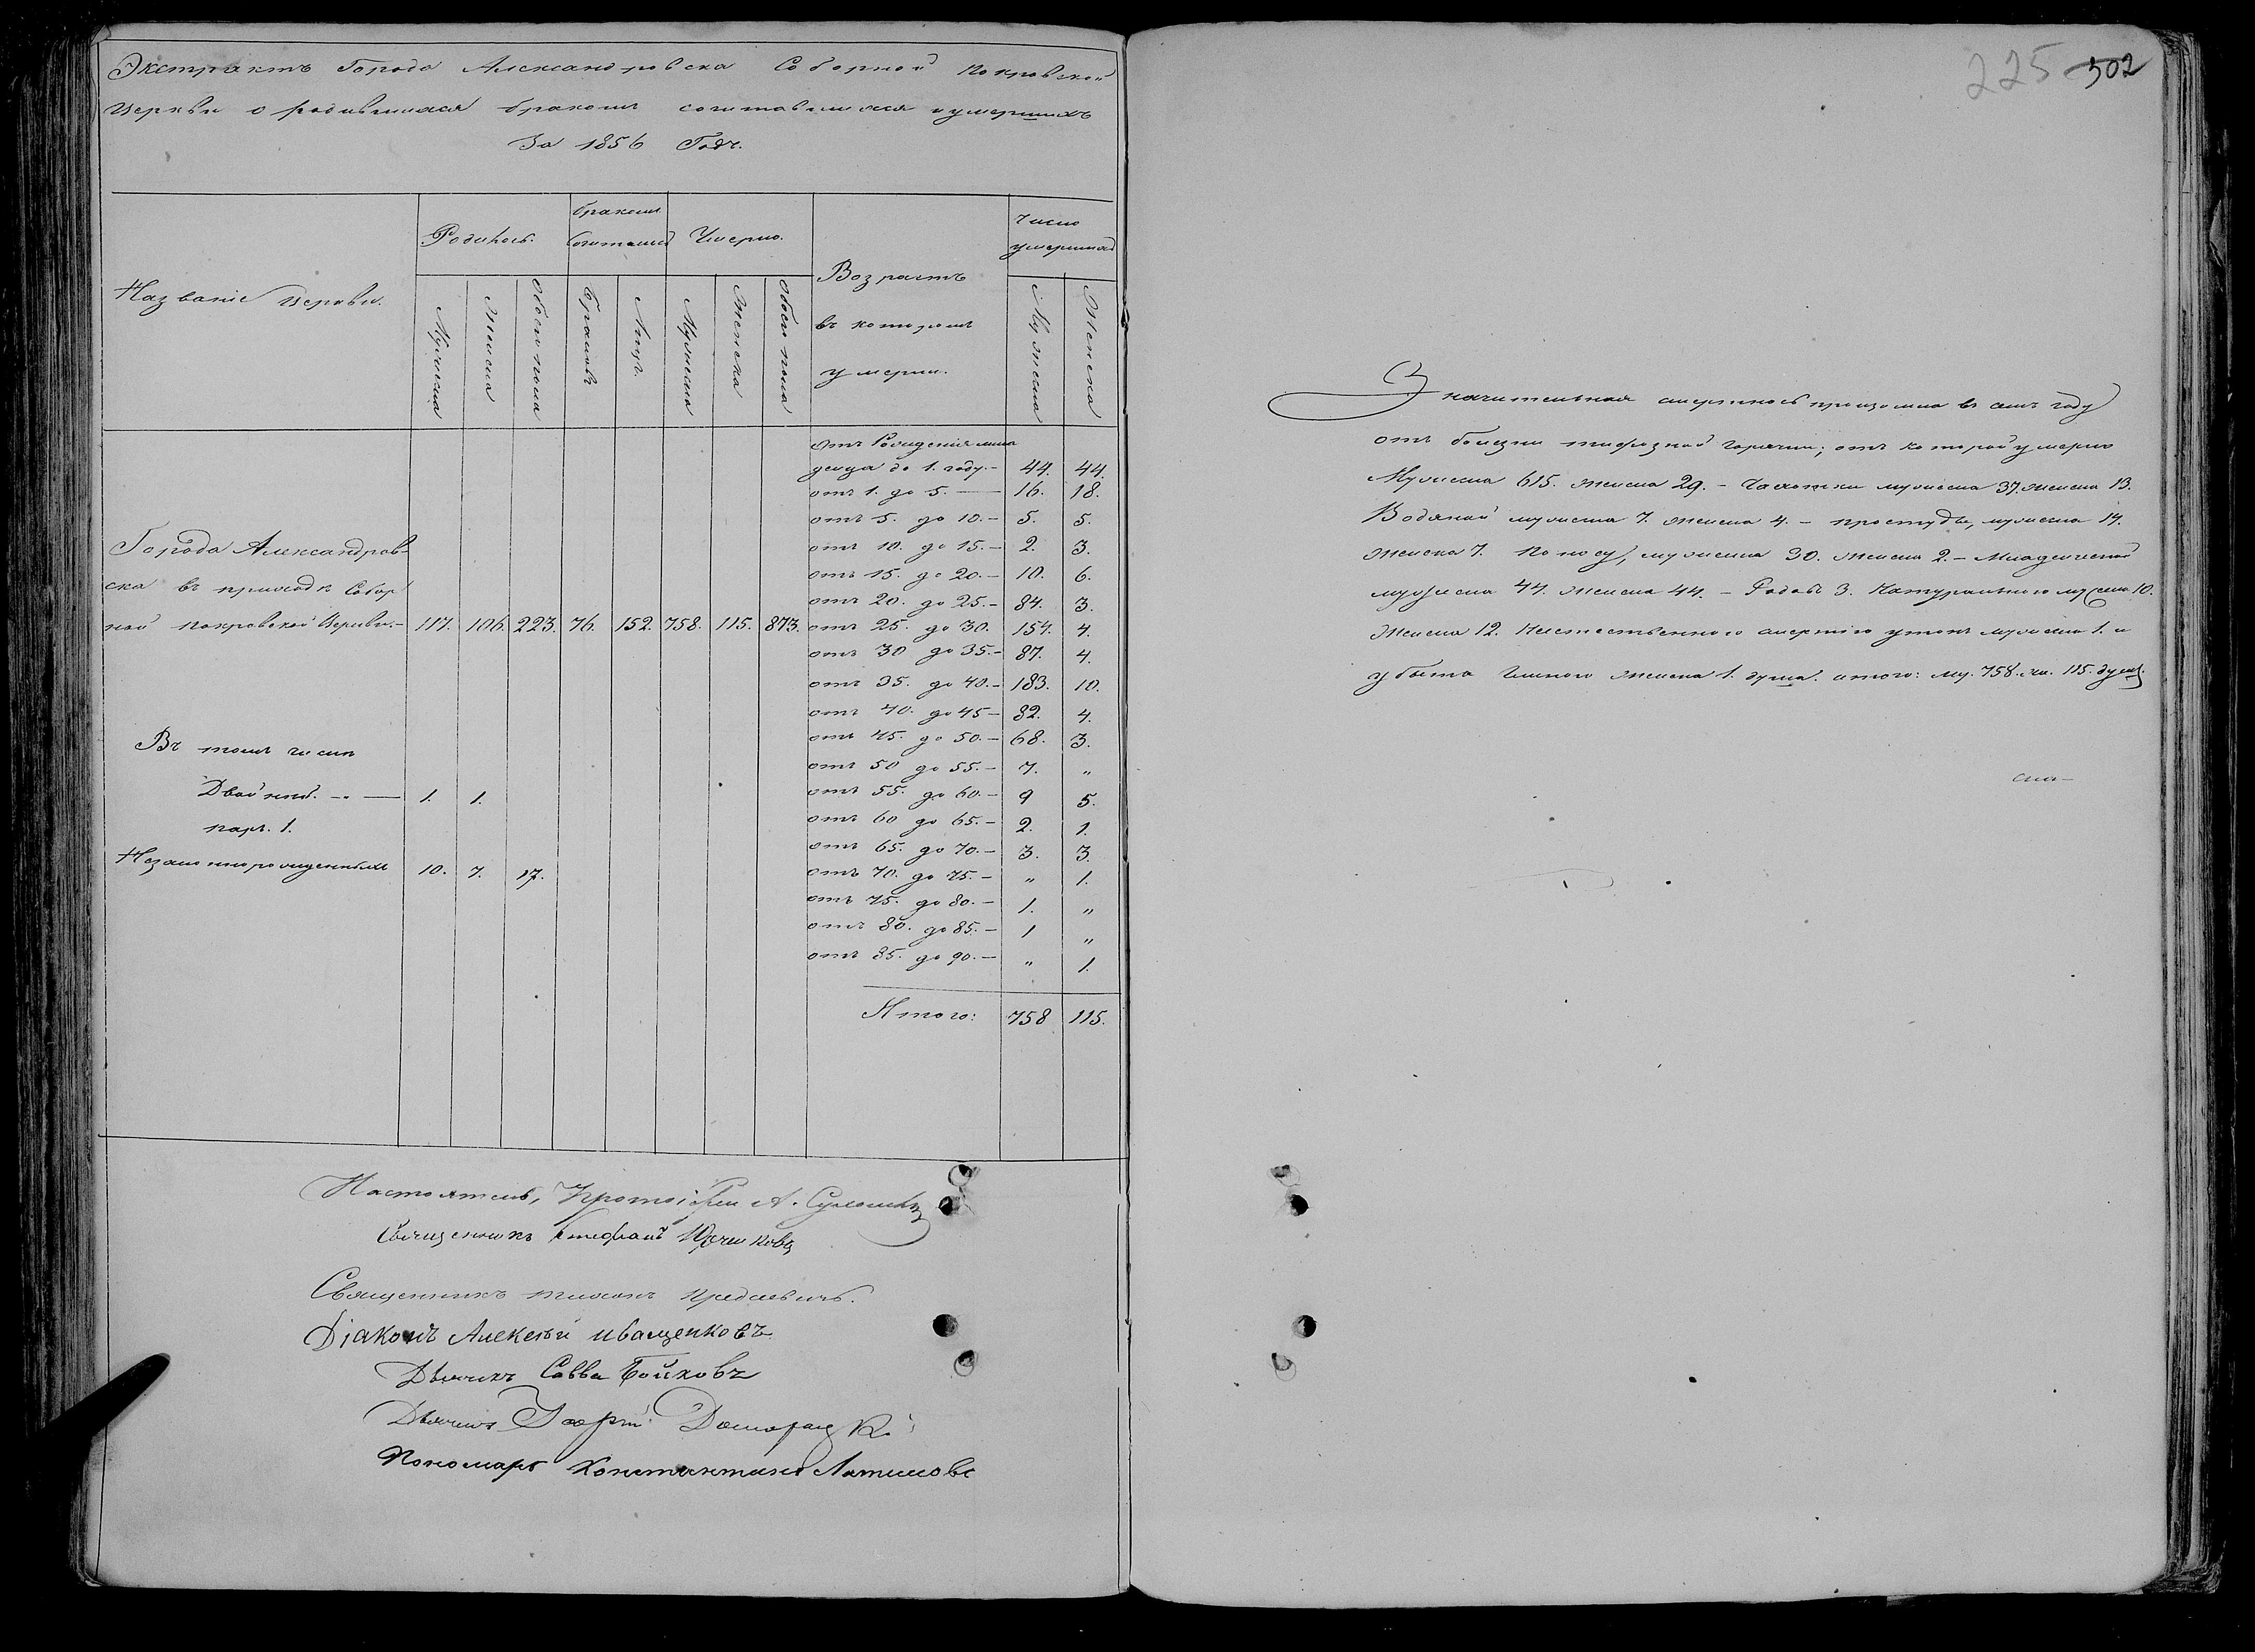 Экстрактъ Города Александровска Соборной Покровской
Церкви о родившихся бракомъ сочитавшихся и умершихъ
За 1856 Годъ.
Названіе Церкви.
Родилось.
бракомъ
сочитались
Умерло.
Возрастъ
въ которомъ
умерли.
Число
умершихъ
Мужеска
Женска
Обоего пола
Браковъ
Лицъ.
Мужеска
Женска
Обоего пола
Мужеска
Женска
Города Александров-
ска въ приходѣ Собор
ной Покровской Церкви.- 117. 106. 223. 76. 152. 758. 115. 873.
Въ томъ числѣ
Двойней. - 1. 1.
паръ. 1.
Незаконнорожденныхъ 10. 7. 17.
Отъ Рожденія мла
денца до 1. году.- 44. 44.
отъ 1. до 5. — 16. 18.
отъ 5. до 10.- 5. 5.
отъ 10. до 15.- 2. 3.
отъ 15. до 20.- 10. 6.
отъ 20. до 25.- 84. 3.
отъ 25. до 30. 154. 4.
отъ 30 до 35.- 87. 4.
отъ 35. до 40.- 183. 10.
отъ 40. до 45- 82. 4.
отъ 45. до 50.- 68. 3.
отъ 50 до 55.- 7. „
отъ 55. до 60.- 9 5.
отъ 60 до 65.- 2. 1.
отъ 65. до 70.- 3. 3.
отъ 70. до 75.- „ 1.
отъ 75. до 80.- 1. „
отъ 80. до 85.- 1 „
отъ 85. до 90.- „ 1.
Итого: 758 115.
Настоятель, Протоіерей А.
Священникъ Стефанъ
Священникъ
Діаконъ Алексѣй Иващенковъ
Дьячекъ Савва Бойковъ
Дьячекъ
Пономарь Константинъ
225 502
Значительная смертность произошла въ семъ году
отъ болезни тифозной горячки; отъ которой умерло
Мужеска 615. женска 29. - Чахотки мужеска 37. женска 13.
Водяной мужеска 7. женска 4. - простуды, мужеска 14.
женска 7. Поносу, мужеска 30. женска 2. - Младенческой
мужеска 44. женска 44. - Родовъ 3. Натуральною мужеска 10.
Женска 12. Неестественною смертію утопъ мужеска 1. и
убыта женска 1. душа. итого: му. 758. жи. 115. душъ.